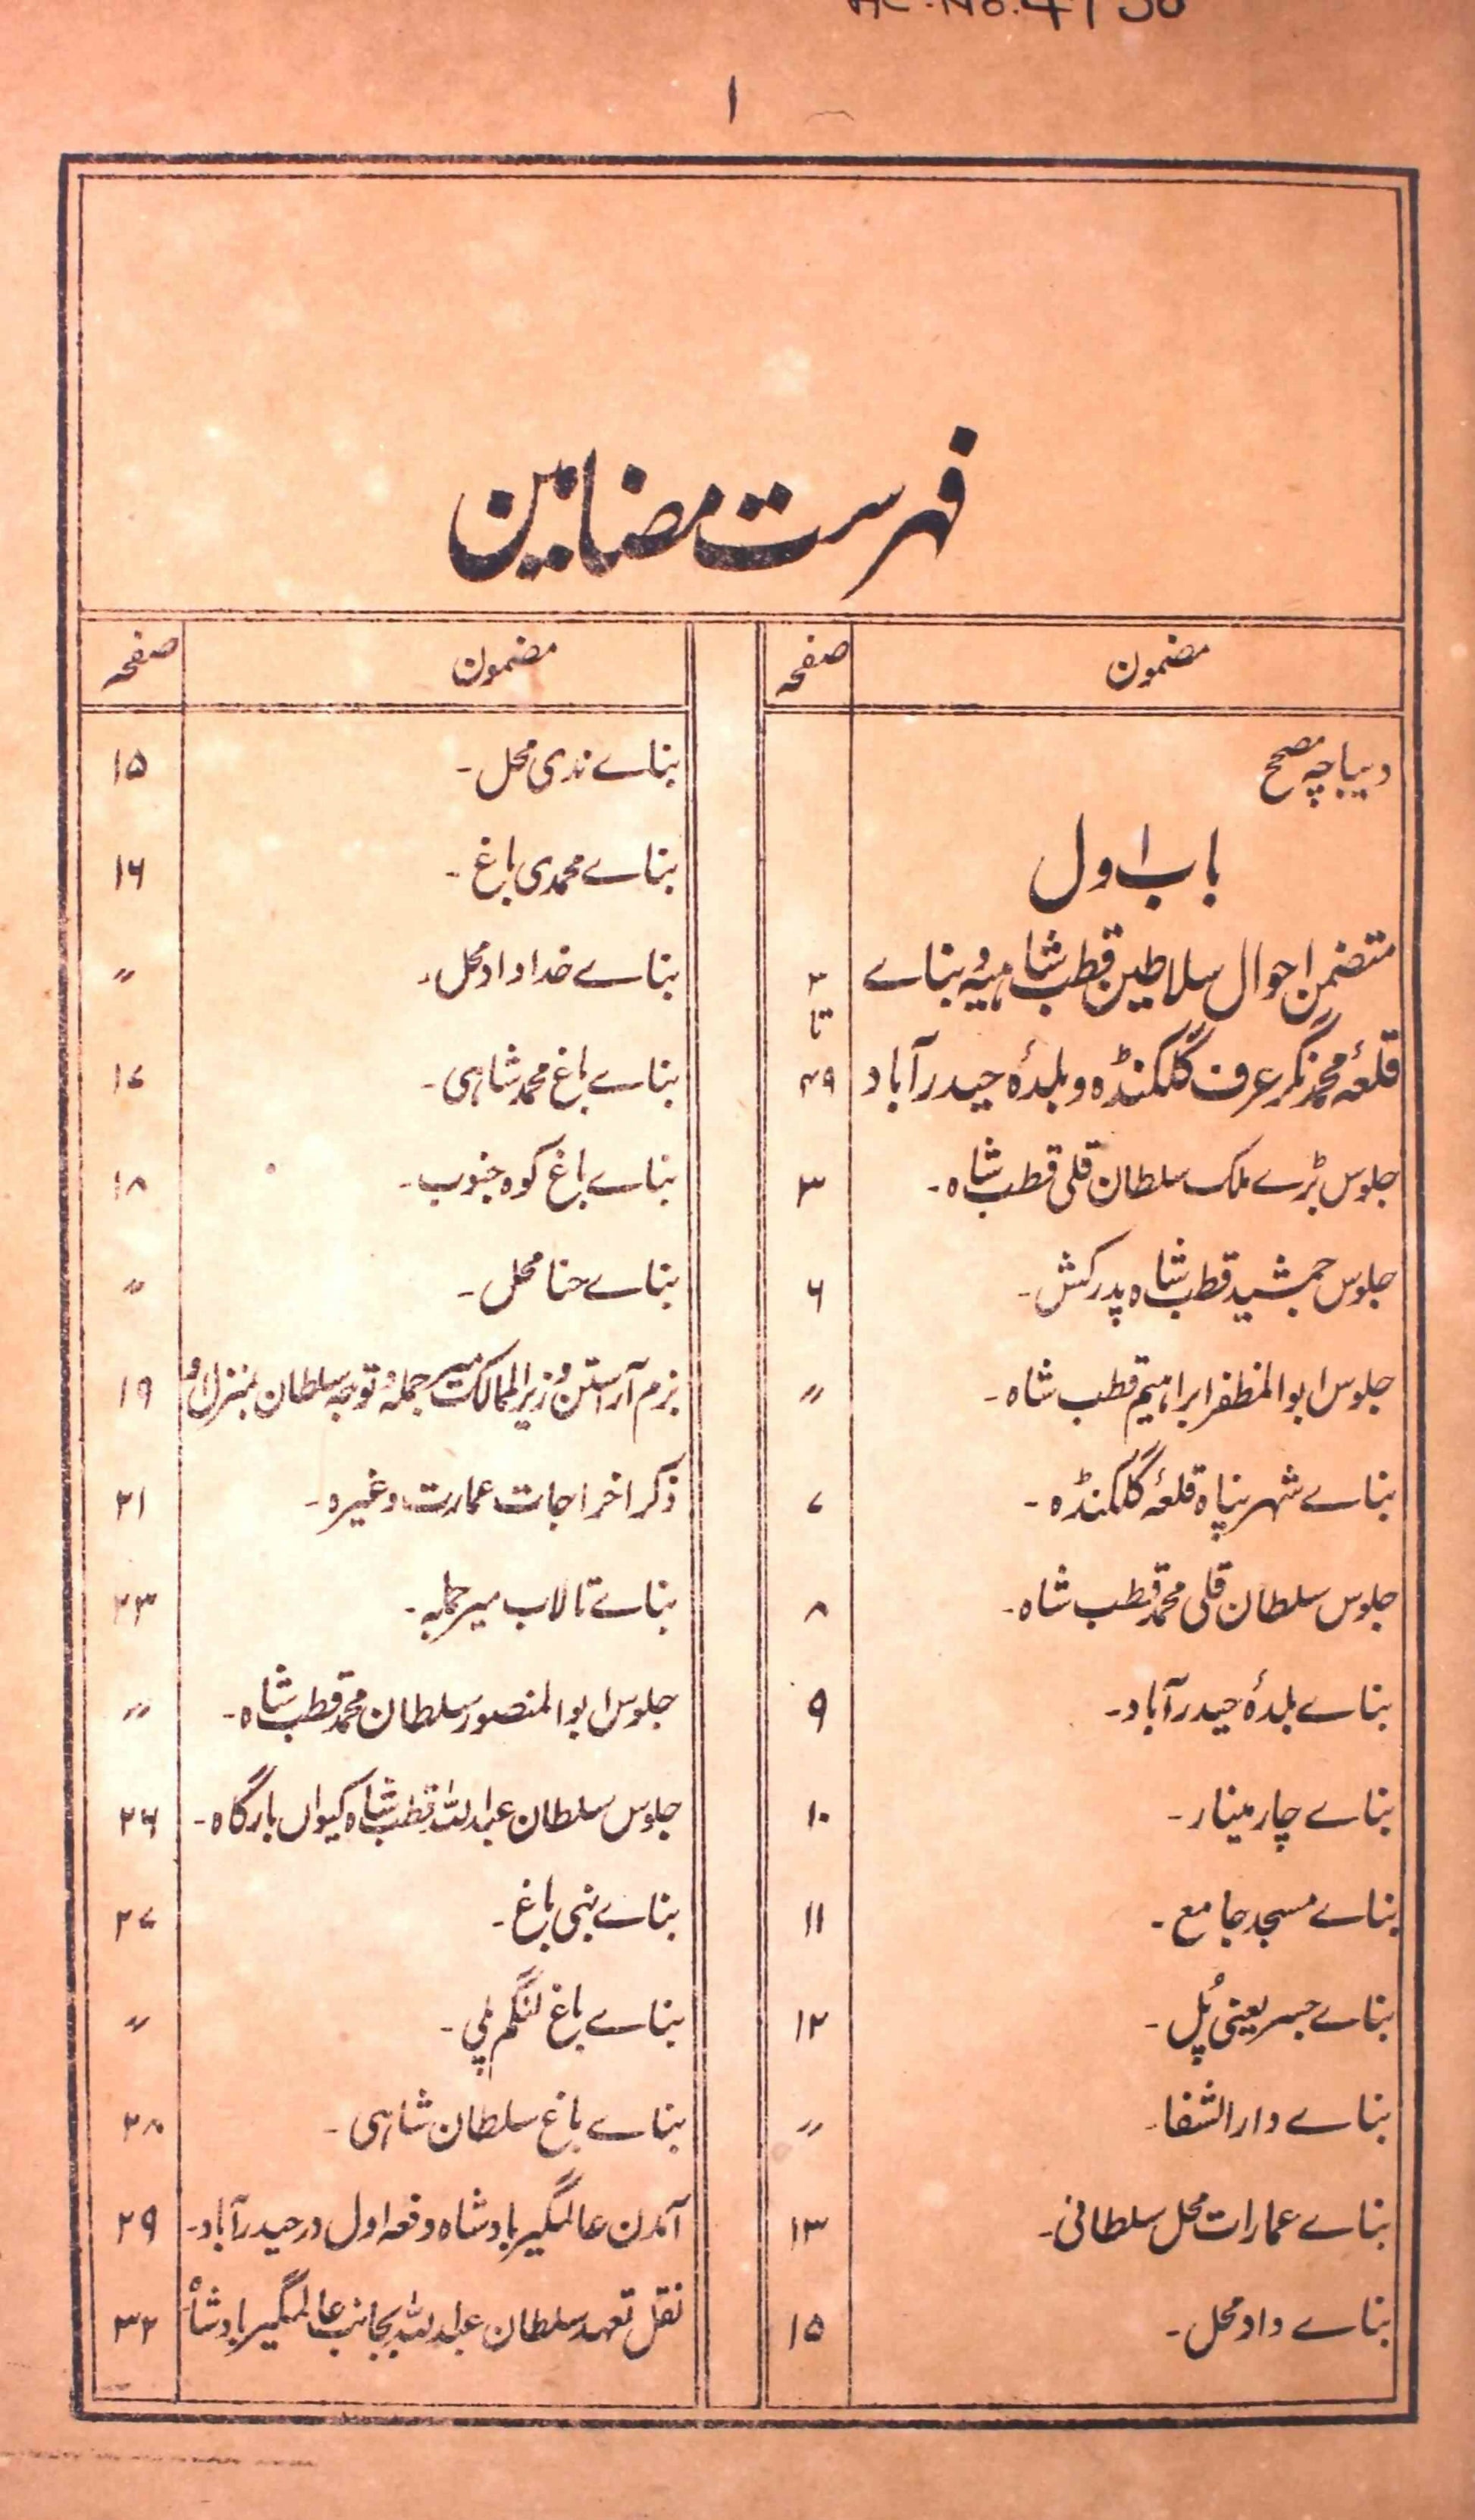 ۱
فہرست مضامین
مضمون صفحہ
دیباچہ مصحح
باب اول
متضمن احوال سلاطین قطب شاہیہ و بناے ۲
تا
قلعۂ محمد نگر عرف گلکنڈہ و بلدۂ حیدرآباد ۴۹
جلوس بڑے ملک سلطان قلی قطب شاہ۔ ۳
جلوس جمشید قطب شاہ پدرکش۔ ۶
جلوس ابوالمظفر ابراہیم قطب شاہ۔ 〃
بناے شہر پناہ قلعۂ گلکنڈہ۔ ۷
جلوس سلطان قلی محمد قطب شاہ۔ ۸
بناے بلدۂ حیدرآباد۔ ۹
بناے چار مینار۔ ۱۰
بناے مسجد جامع۔ ۱۱
بناے جسر یعنی پُل۔ ۱۲
بناے دارالشفا۔ 〃
بناے عمارات محل سلطانی۔ ۱۳
بناے داد محل۔ ۱۵
مضمون صفحہ
بناے ندی محل۔ ۱۵
بناے محمدی باغ۔ ۱۶
بناے خداداد محل۔ 〃
بناے باغ محمد شاہی۔ ۱۷
بناے باغ کوہ جنوب۔ ۱۸
بناے حنا محل۔ 〃
بزم آراستن وزیر الممالک میر جملہ و توجہ سلطان بمنزل او ۱۹
ذکر اخراجات عمارت وغیرہ۔ ۲۱
بناے تالاب میر جملہ۔ ۲۳
جلوس ابوالمنصور سلطان محمد قطب شاہ۔ 〃
جلوس سلطان عبداللہ قطب شاہ کیواں بارگاہ۔ ۲۶
بناے نبی باغ۔ ۲۷
بناے باغ لنگم پلی۔ 〃
بناے باغ سلطان شاہی۔ ۲۸
آمدن عالمگیر بادشاہ دفعہ اول در حیدرآباد۔ ۲۹
نقل تعہد سلطان عبداللہ بجانب عالمگیر بادشاہ ۳۲